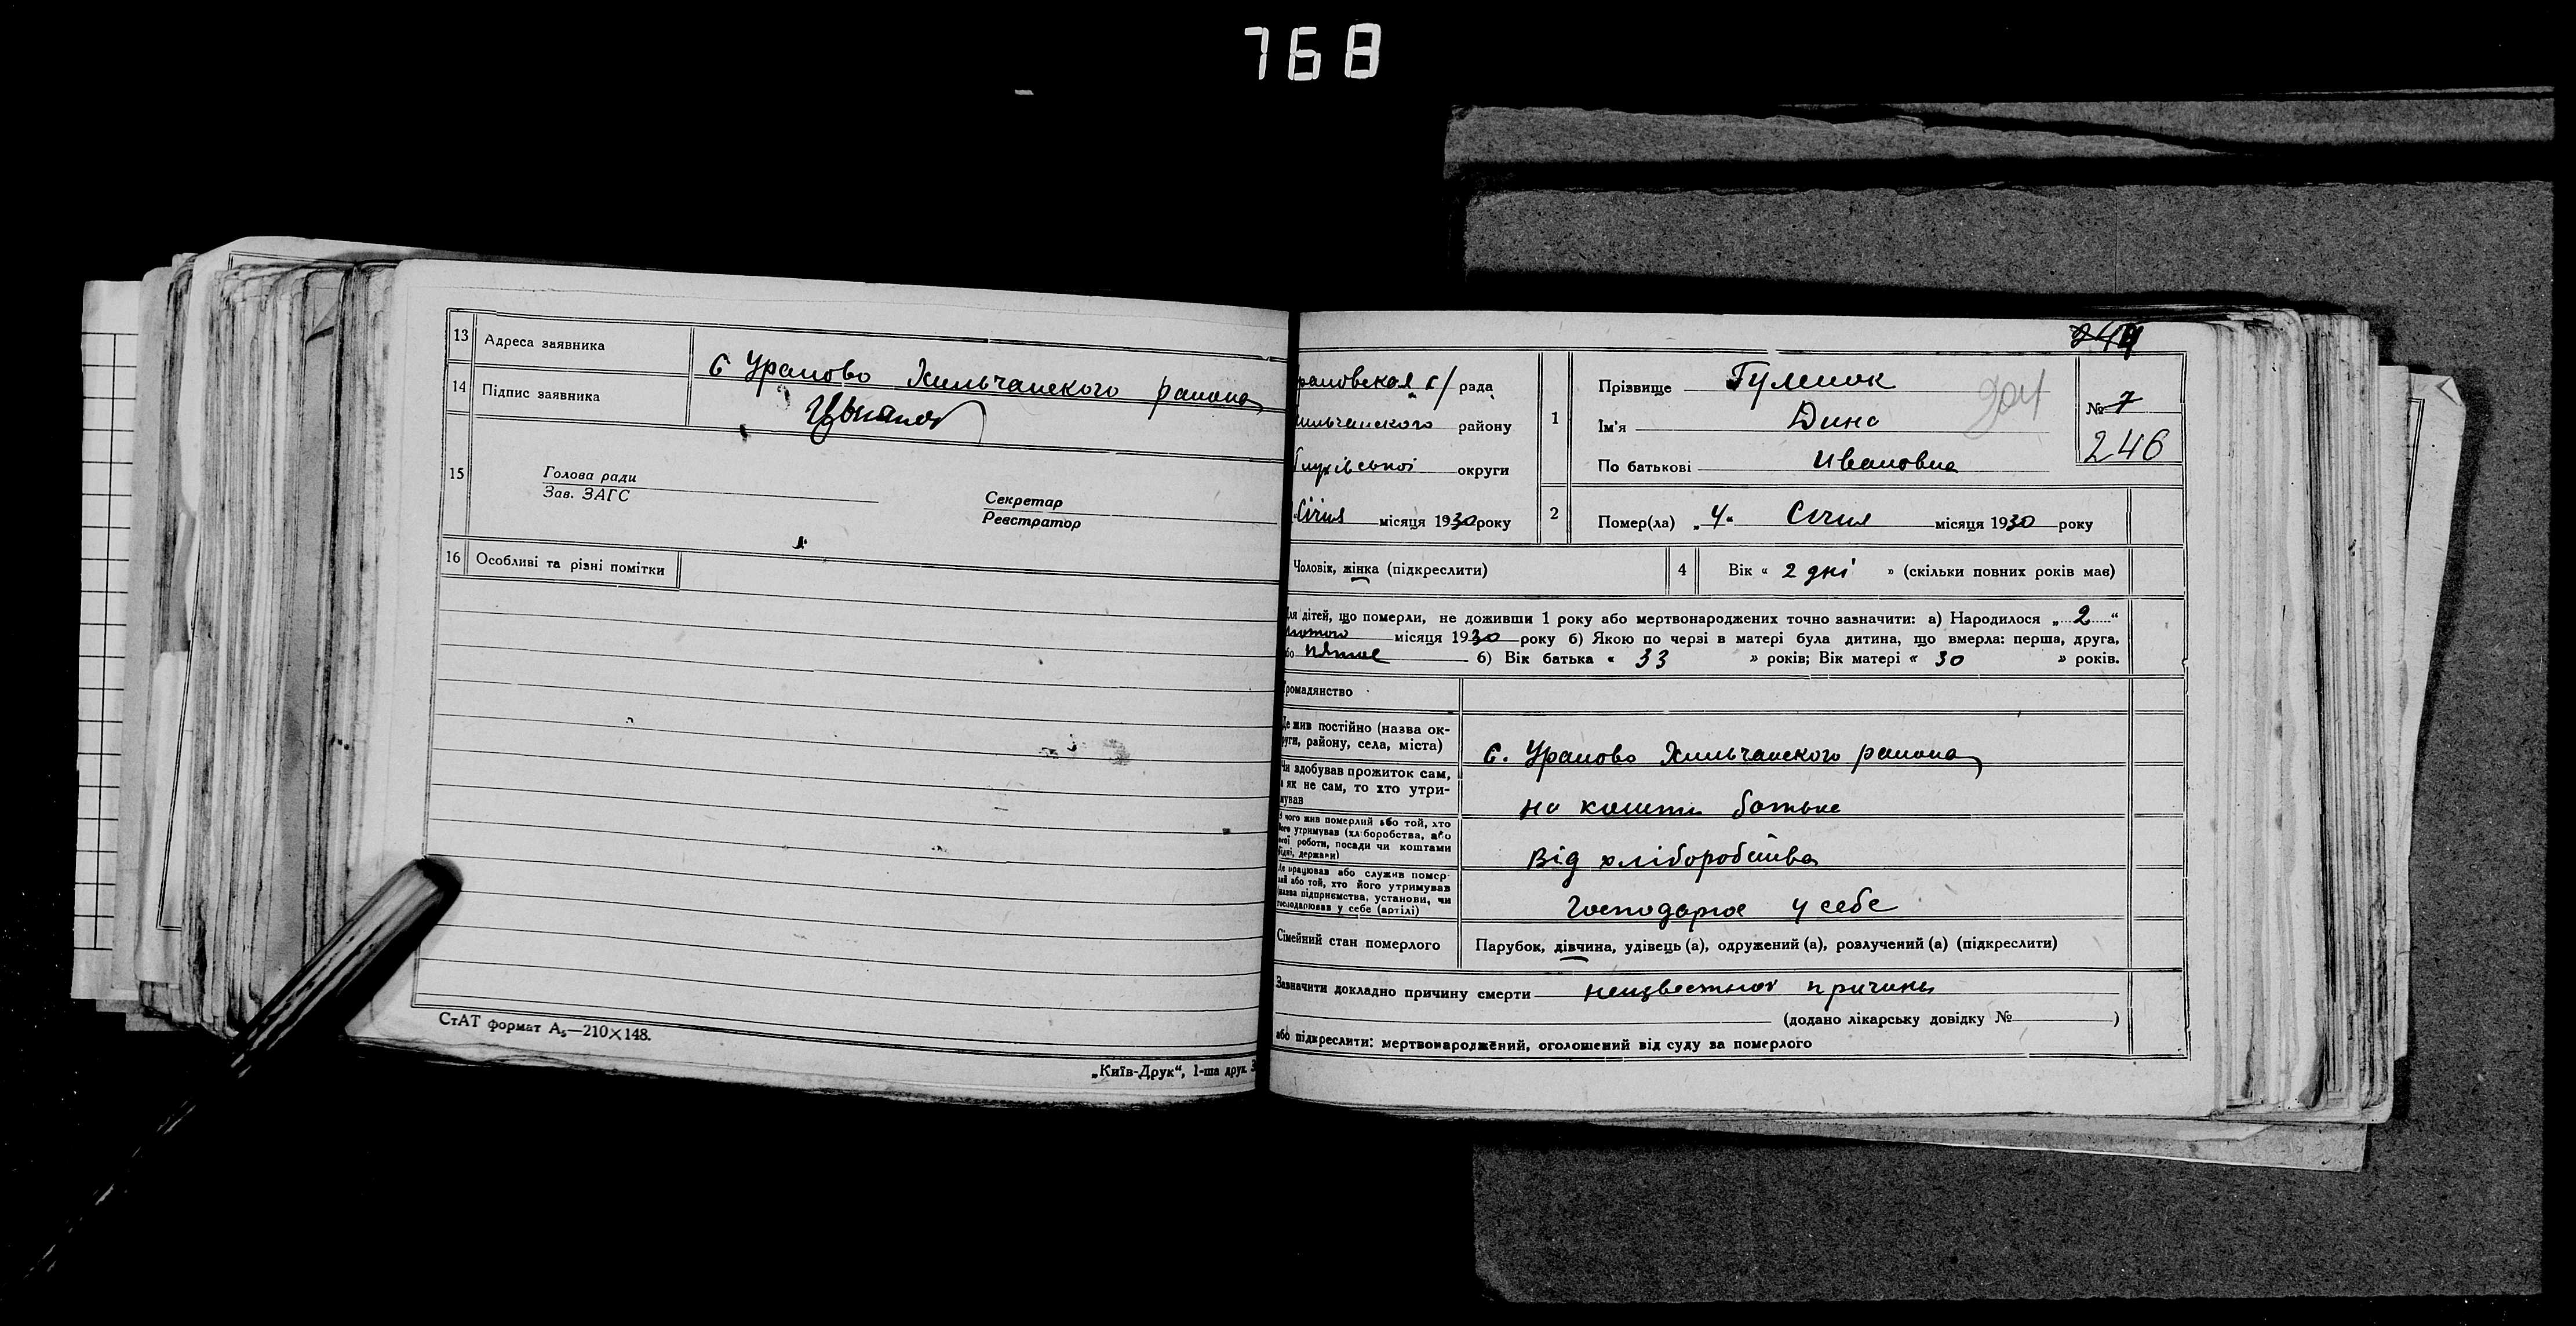 768
13 Адреса заявника
с Уралово Хильчанского района
14 Підпис заявника
15
Голова ради
Зав. ЗАГС
Секретар
Реєстратор
16 Особливі та різні помітки
СтАТ формат А₅—210×148.
„Київ-Друк“, 1-ша друк. З
244
раловская с/ рада
ильчанского району
Глухівської округи
Січня місяця 1930 року
1 Прізвище Гуленок
Ім'я Дина
По батькові Ивановна
№ 7
246
2 Помер(ла) „4“ Січня місяця 1930 року
Чоловік, жінка (підкреслити)
4 Вік « 2 дні » (скільки повних років має)
ля дітей, що померли, не доживши 1 року або мертвонароджених точно зазначити: а) Народилося „ 2 “
лютого місяця 1930 року б) Якою по черзі в матері була дитина, що вмерла: перша, друга,
бо пятая б) Вік батька « 33 » років; Вік матері « 30 » років.
ромадянство
е жив постійно (назва ок-
руги, району, села, міста)
с. Уралово Хильчанского района
Чи здобував прожиток сам,
а як не сам, то хто утри-
мував
на кошти батька
З чого жив померлий або той, хто
його утримував (хліборобства, або
якої роботи, посади чи коштами
рідні, держави)
Від хліборобства
Де працював або служив помер-
лий або той, хто його утримував
(назва підприємства, установи, чи
господарював у себе (артілі)
Господарює у себе
Сімейний стан померлого
Парубок, дівчина, удівець (а), одружений (а), розлучений (а) (підкреслити)
Зазначити докладно причину смерти неизвестной причины
(додано лікарську довідку № )
або підкреслити: мертвонароджений, оголошений від суду за померлого